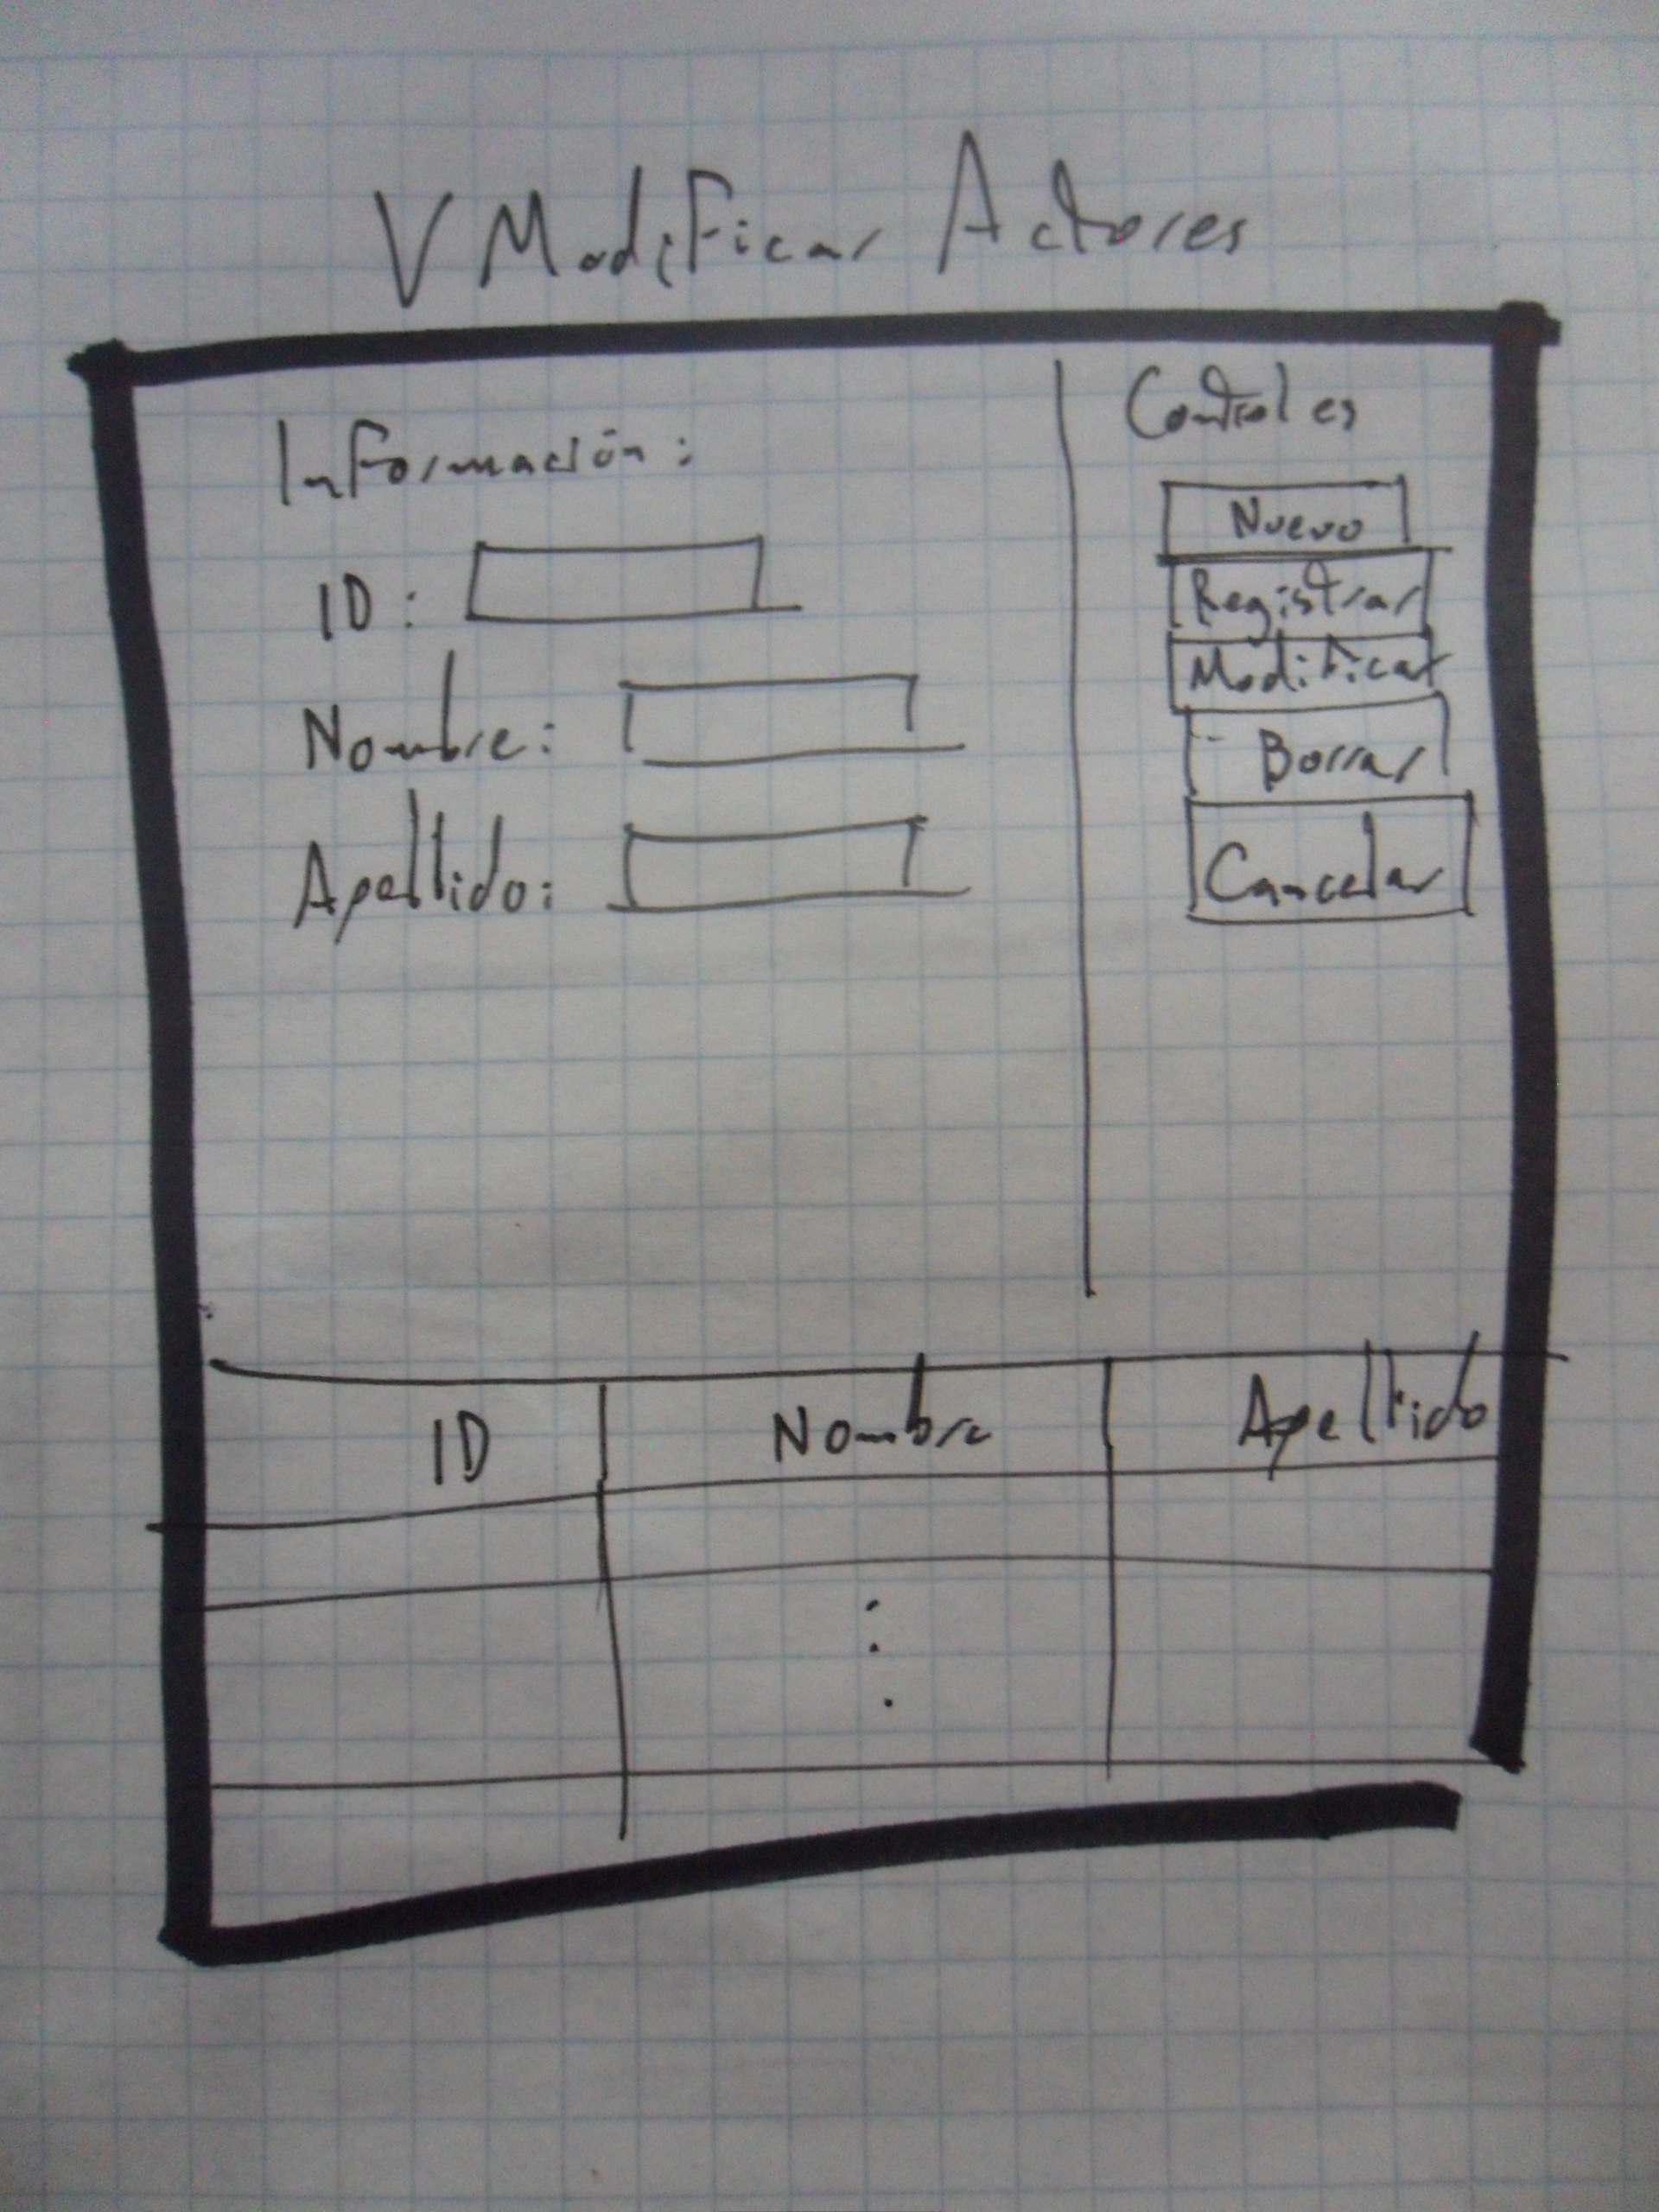 V Modificar Actores
Información:
ID:
Nombre:
Apellido:
Controles
Nuevo
Registrar
Modificar
Borrar
Cancelar
ID Nombre Apellido